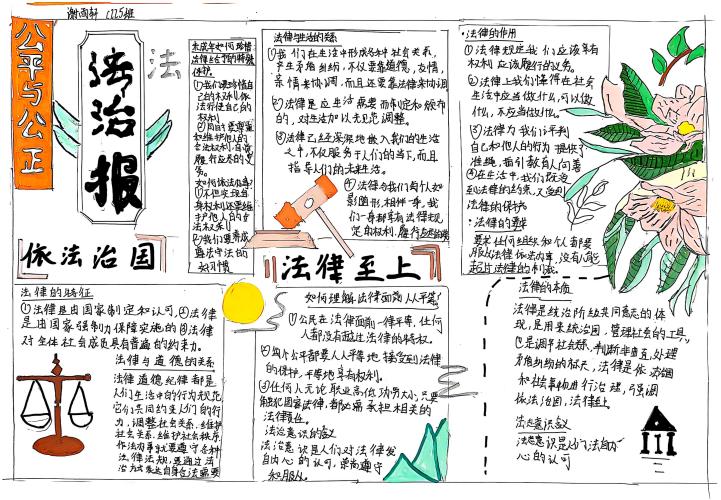 谢雨轩 1725班
公平与公正
法治报
法
依法治国
法律至上
未成年如何珍惜
法律给予的特殊
保护。
①我们要珍惜自
己的权利，依
法行使自己的
权利
②同时要尊重
和维护他人的
合法权利，自觉
履行应尽的义
务。
如何依法办事?
①不但要
身权利还要维
护他人的合
法权利
②我们要养成
遵法守法的
好习惯
法律与生活的关系
①我们在生活中形成各种社会关系，
产生矛盾纠纷，不仅要靠道德，友情，
亲情去协调，而且还要靠法律来协调
②法律是应生活需要而制定和颁布
的，对生活加以规范调整。
③法律已经深深地嵌入我们的生活
之中，不仅服务于人们的当下，而且
指导人们的未来生活。
④法律与我们每个人如
影随形，相伴一身，我
们一身都享有法律规
定的权利，履行
法律的作用
①法律规定我们应该享有
权利应该履行的义务。
②法律上我们懂得在社会
生活中应当做什么，可以做
什么，不应当做什么。
③法律为我们评判
自己和他人的行为提供了
准绳，指引教育人向善
④在生活中，我们既受
到法律的约束，又受到
法律的保护
·法律的要求
要求任何组织和个人都要
服从法律依法办事，没有人能
超过法律的制裁。
法律的特征
①法律是由国家制定和认可，②法律
是由国家强制力保障实施的③法律
对全体社会成员具有普遍的约束力。
法律与道德的关系
法律道德纪律都是
人们生活中的行为规范
它们共同约束人们的行
为，调整社会关系，维护
社会关系，维护社会秩序
作法办事就要遵守各种
法律法规，要通过法
如何理解法律面前人人平等?
①公民在法律面前一律平等，任何
人都没有超过法律的特权。
②每个公平都要人人平等地接受到法律
的保护，平等地享有权利。
③任何人无论职业高低功劳大小，只要
触犯国家法律，都必需承担相关的
法律责任。
法治意识的含义
法治意识是人们对法律发
自内心的认可，崇尚遵守
和服从。
法律的本质
法律是统治阶级共同意志的体
现，是用来统治国，管理社会的工具，
也是调节社会关系，判断非曲直，处理
矛盾纠纷的标尺，法律是依法治国
和社会事物进行治理，强调
依法治国，法律至上。
法治意识含义
法治意识是人们法自内
心的认可